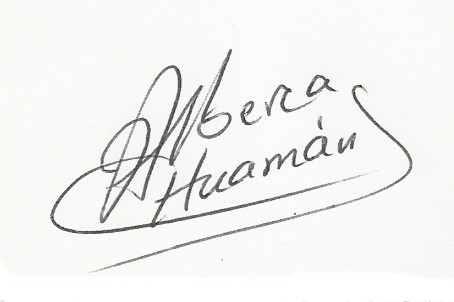 Alberca
Huamán